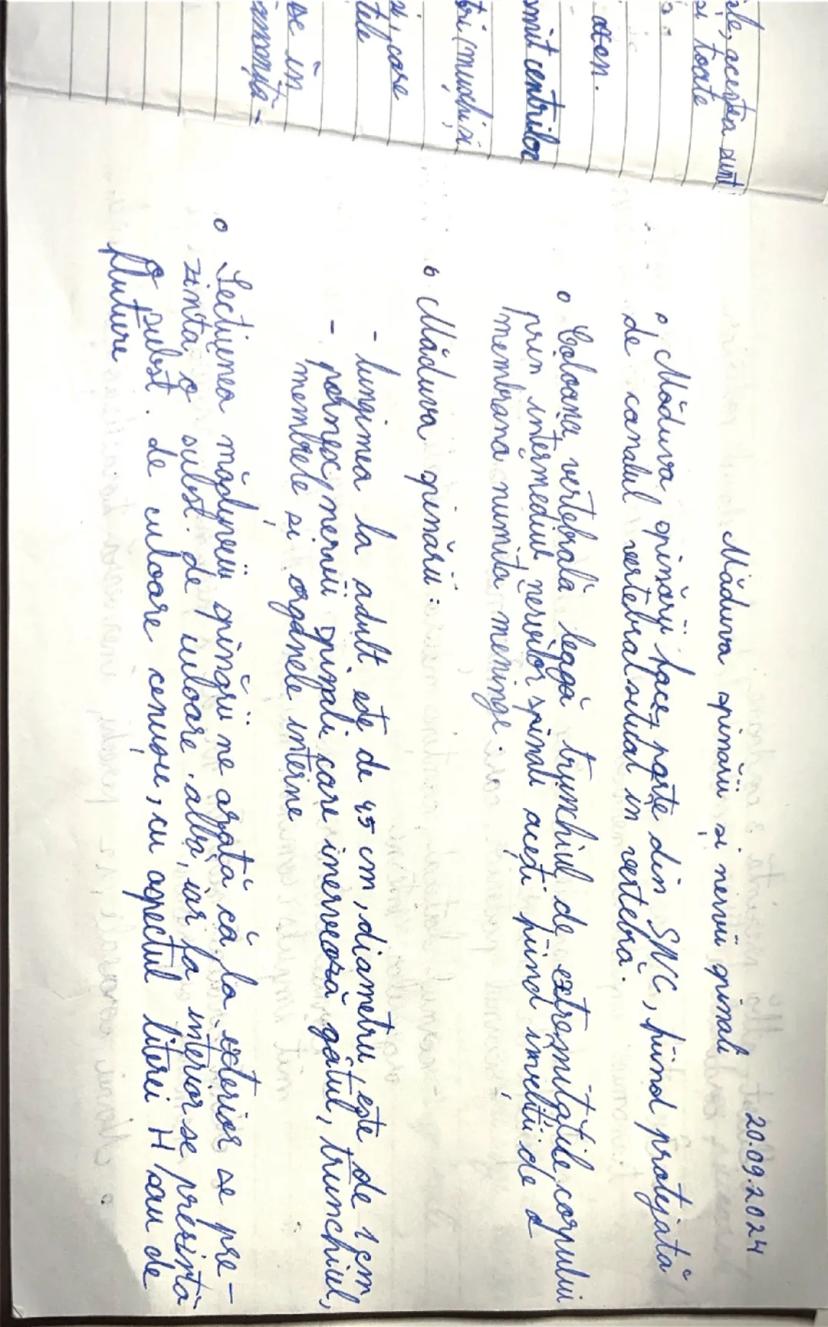 le, acestea sunt
si toate
aten.
mit centrilor
tri (muschi si
i, care
tile
se in
20.09.2024
Măduva spinării și nervii spinali
o Măduva spinării face parte din SNC, fiind protejată
de canalul vertebral situat in vertebră.
o Coloana vertebrală leagă trunchiul de extremitățile corpului
prin intermediul nervilor spinali acești fiind inveliti de
membrana numita meninge.
o Măduva spinării:
- lungimea la adult este de 45 cm, diametru este de 1 cm
- nervii spinali care inervează gâtul, trunchiul,
membrele si organele interne
o Sectiunea măduvei spinării ne arată că la exterior se pre-
zinta o subst. de culoare albă, iar la interior se prezintă
o subst. de culoare cenușie, cu aspectul literei H sau de
fluture